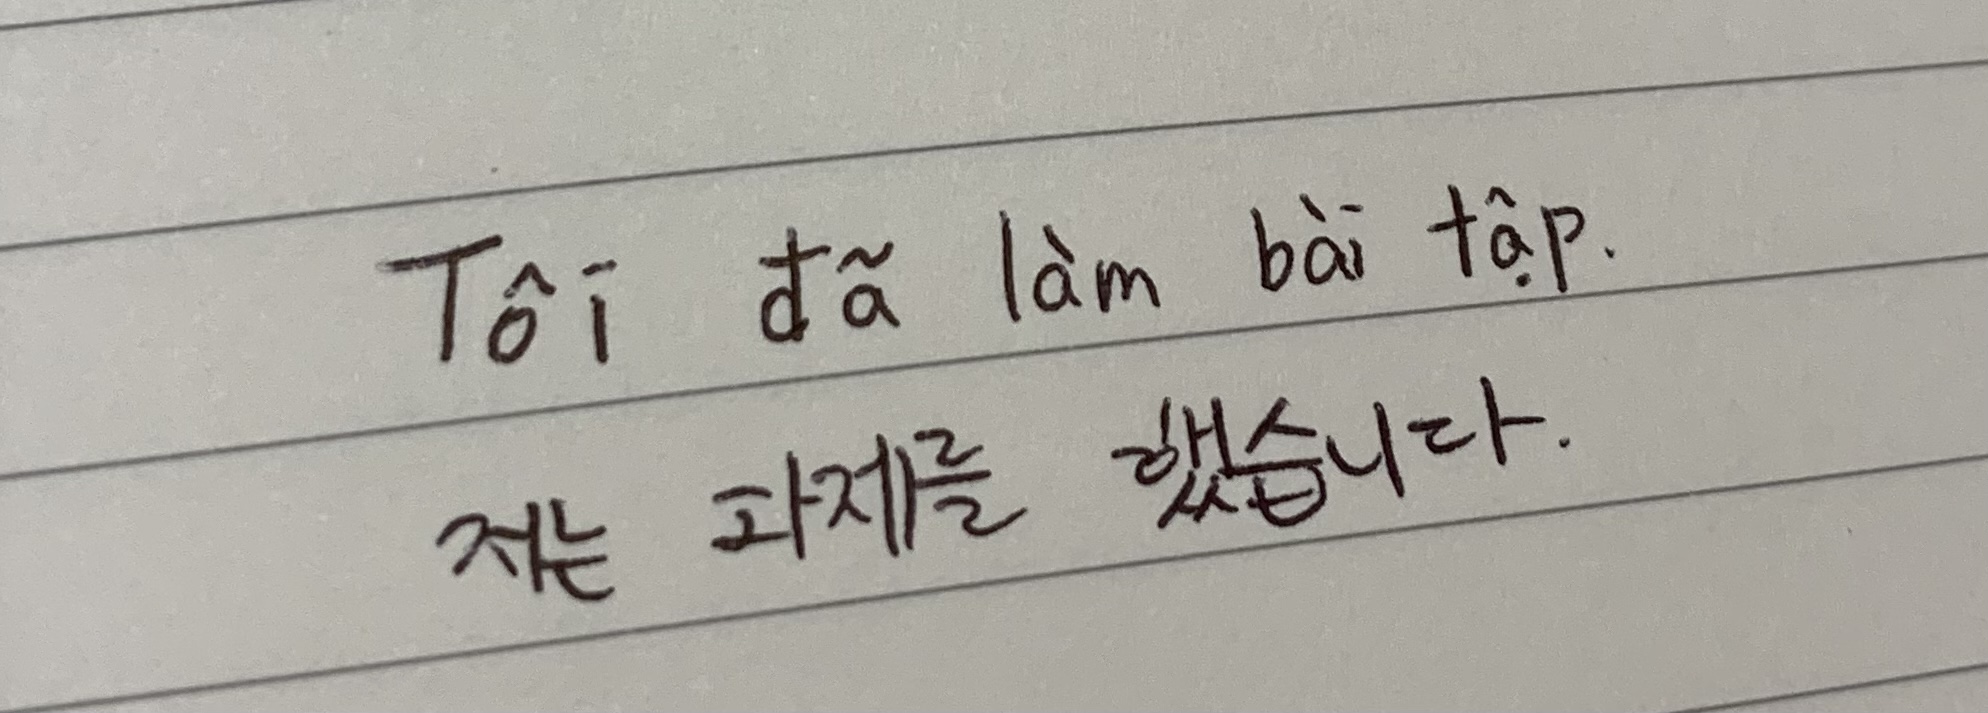 Tôi đã làm bài tập.
저는 과제를 했습니다.